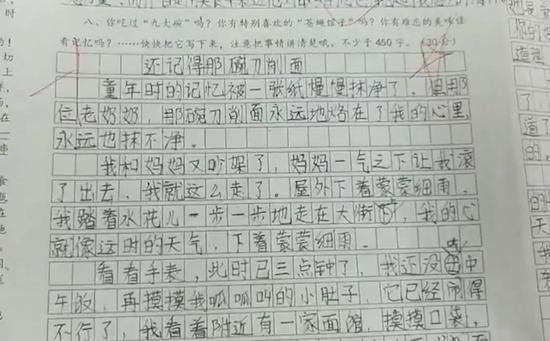 八、你吃过“九大碗”吗？你有特别喜欢的“苍蝇馆子”吗？你有难忘的美味佳
看记忆吗？……快快把它写下来，注意把事情讲清楚哦，不少于450字。（30分）
还记得那碗刀削面
童年时的记忆被一张纸慢慢抹净了，但那
位老奶奶，那碗刀削面永远地烙在了我的心里，
永远也抹不净。
我和妈妈又吵架了，妈妈一气之下让我滚
了出去，我就这么走了。屋外下着蒙蒙细雨。
我踏着水花儿一步一步地走在大街上，我的心
就像这时的天气，下着蒙蒙细雨。
看看手表，此时已三点钟了，我还没吃中
午饭，再摸摸我呱呱叫的小肚子，它已经饿得
不行了，我看着附近有一家面馆，摸摸口袋，